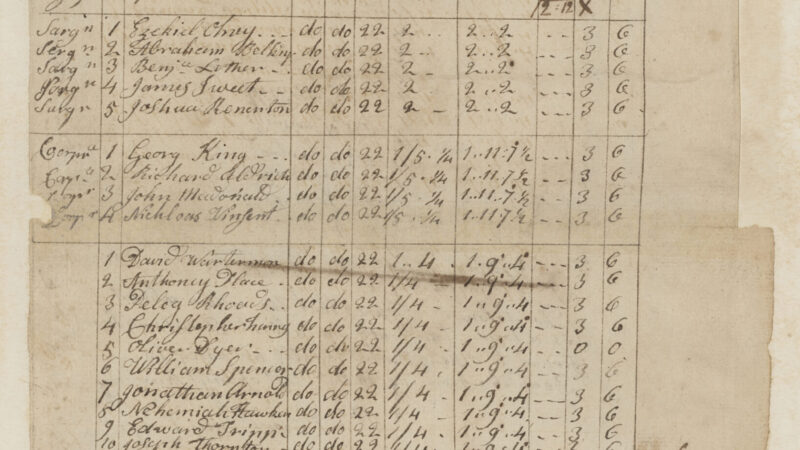 12:12 X
Sarg n 1 Ezekiel Olney do do 22 2 2..2 --- 3 6
Serg n 2 Abraham Belking do do 22 2 - 2..2 --- 3 6
Sarg n 3 Benj a Luther do do 22 2 - 2..2 --- 3 6
Sarg n 4 James Sweet do do 22 2 - 2..2 --- 3 6
Sarg n 5 Joshua Renenton do do 22 2 - 2..2 --- 3 6
1 Georg King --- do do 22 1/5.1/4 1..11..7 1/2 --- 3 6
2 Richard Aldrich do do 22 1/5.1/4 1..11.7 1/2 --- 3 6
3 John Mcdonald do do 22 1/5.1/4 1..11..7 1/2 --- 3 6
Corp r 4 Nichloas Vinsent do do 22 1/5.1/4 1..11.7 1/2 --- 3 6
1 David Warterman do do 22 1..4 1..9..4 --- 3 6
2 Anthoney Place do do 22 1/4 1..9..4 --- 3 6
3 Peleg Rhoads do do 22 1/4 - 1..9..4 --- 3 6
4 Christopher do do 22 1/4 - 1..9..4 --- 3 6
5 Oliver Dyer --- do do 22 1/4 - 1..9..4 --- 0 0
6 William Spencer do do 22 1/4 - 1..9..4 --- 3 6
7 Jonathan Arnold do do 22 1/4 - 1..9..4 --- 3 6
8 Nehemiah Hawken do do 22 1/4 - 1..9..4 --- 3 6
9 Edward Tripp do do 22 1/4 - 1..9..4 --- 3 6
10 Joseph Thornton do do 22 1/4 1..9..4 --- 3 6